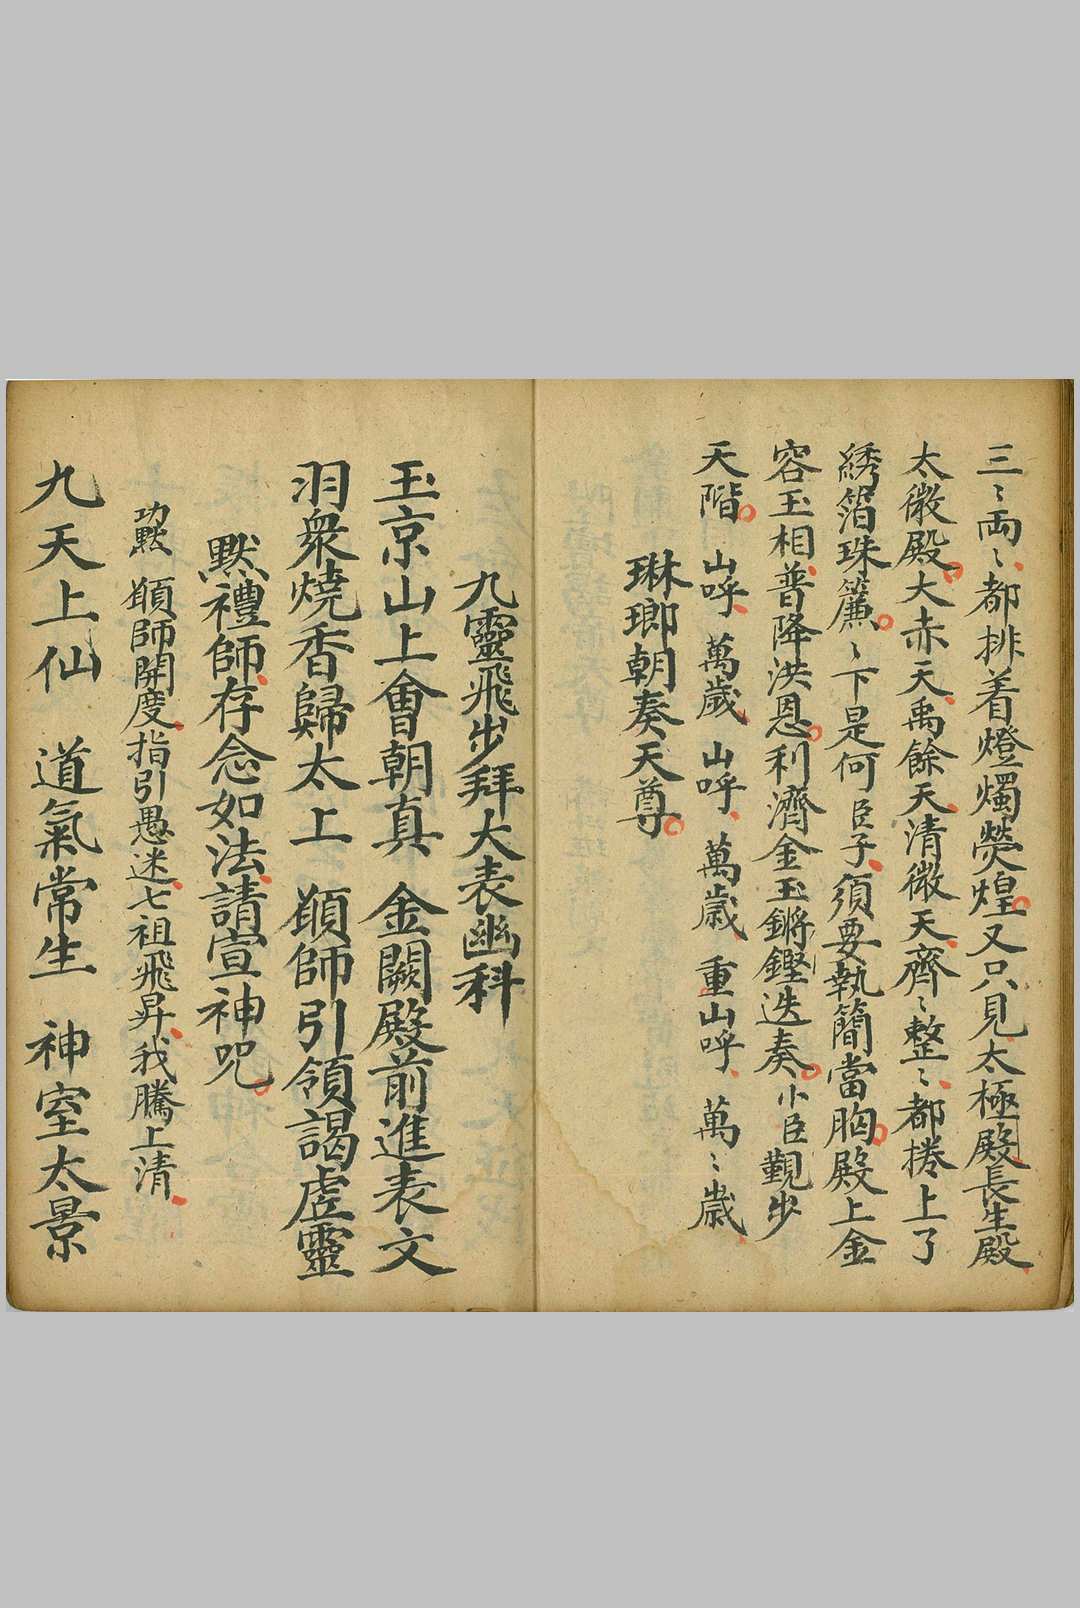 三〻両〻都排着燈燭熒煌又只見太極殿長生殿
太微殿大赤天禹餘天清微天齊〻整〻都捲上了
綉箔珠簾〻下是何臣子須要執簡當胸殿上金
容玉相普降洪恩利濟金玉鏘鏗迭奏小臣覲步
天階 山呼萬歲 山呼萬歲 重山呼萬〻歲
琳瑯朝奏天尊
九靈飛步拜大表幽科
玉京山上會朝真 金闕殿前進表文
羽衆燒香歸太上 願師引領謁虛靈
黙禮師存念如法請宣神咒
功黙 願師開度指引愚迷七祖飛昇我騰上清
九天上仙 道氣常生 神室太景